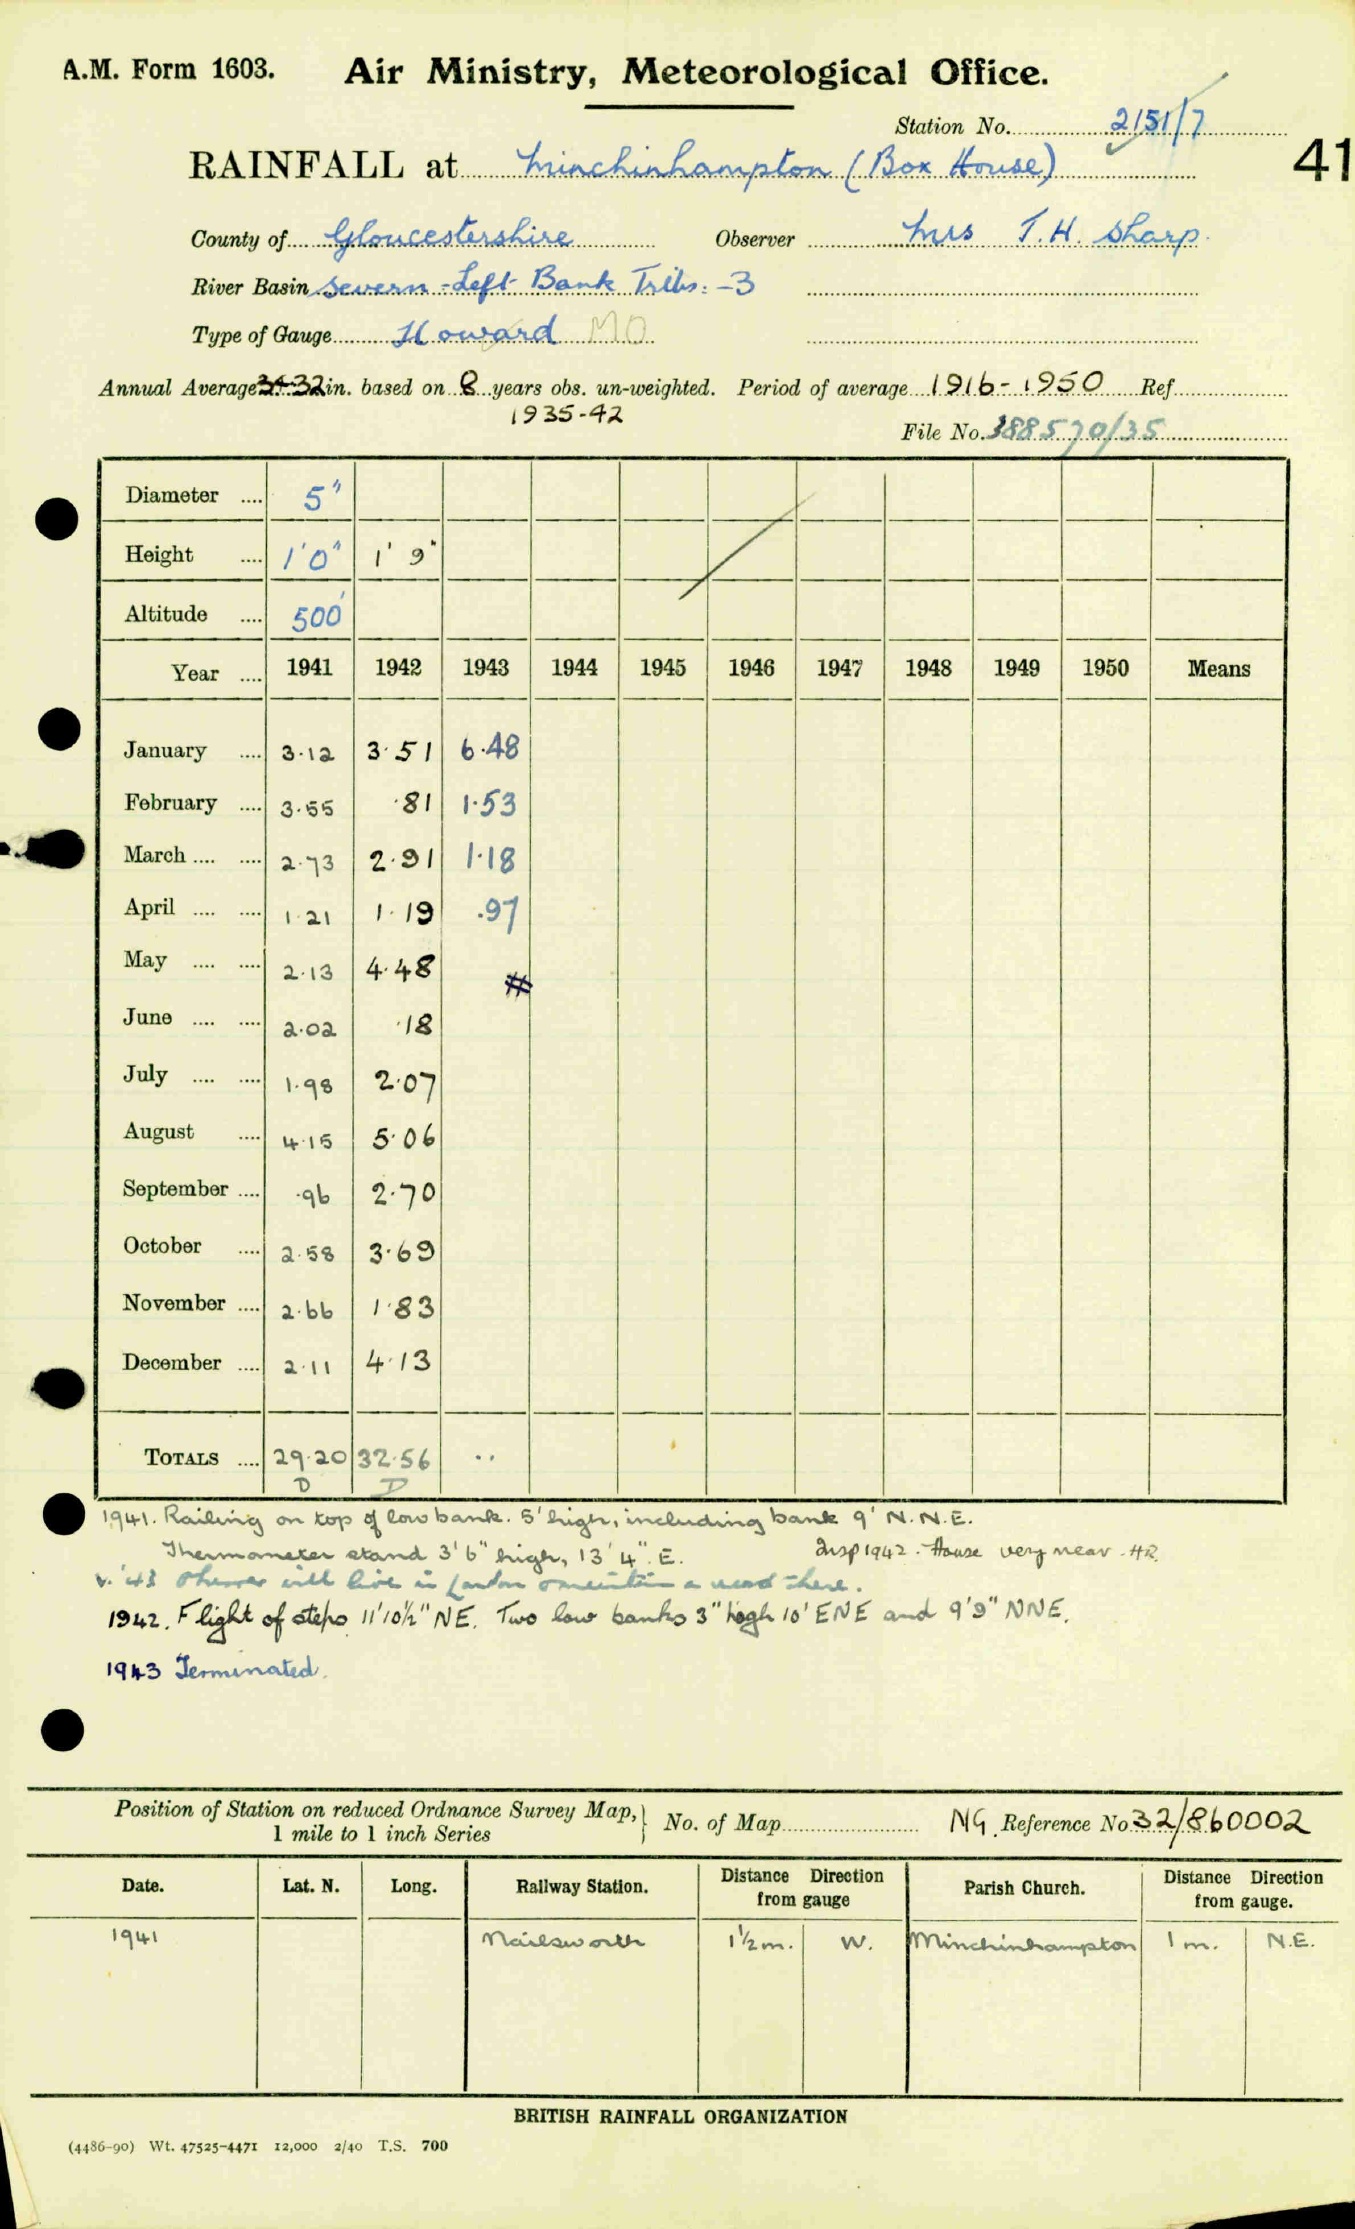 A.M. Form 1603. Air Ministry, Meteorological Office.
Station No. 2151/7
41
RAINFALL at Minchinhampton (Box House)
County of Gloucestershire Observer Mrs T.H. Sharp.
River Basin Severn - Left Bank Tribs: -3
Type of Gauge Howard MO
Annual Average in. based on 8 years obs. un-weighted. Period of average 1916-1950 Ref
1935-42
File No. 388570/35
Diameter .... 5"
Height .... 1'0" 1' 9"
Altitude .... 500'
Year .... 1941 1942 1943 1944 1945 1946 1947 1948 1949 1950 Means
January .... 3.12 3.51 6.48
February .... 3.55 .81 1.53
March .... .... 2.73 2.91 1.18
April .... .... 1.21 1.19 .97
May .... .... 2.13 4.48 #
June .... .... 2.02 .18
July .... .... 1.98 2.07
August .... 4.15 5.06
September .... .96 2.70
October .... 2.58 3.69
November .... 2.66 1.83
December .... 2.11 4.13
TOTALS .... 29.20 32.56 ..
D D
1941. Railing on top of low bank. 5' high, including bank 9' N.N.E.
Thermometer stand 3'6" high, 13'4" E. Insp 1942. House very near. HR
v. '43 Observer will live in London a there.
1942. Flight of steps 11'10½" NE. Two low banks 3" high 10' ENE and 9'9" NNE.
1943 Terminated.
Position of Station on reduced Ordnance Survey Map,
1 mile to 1 inch Series
No. of Map NG. Reference No 32/860002
Date. Lat. N. Long. Railway Station. Distance Direction from gauge Parish Church. Distance Direction from gauge.
1941 Nailsworth 1½ m. W. Minchinhampton 1 m. N.E.
BRITISH RAINFALL ORGANIZATION
(4486-90) Wt. 47525-4471 12,000 2/40 T.S. 700